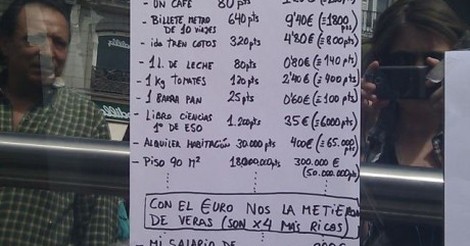 - UN CAFÉ 80 pts
- BILLETE METRO 640 pts 9'40€ (=1800
DE 10 VIAJES pts)
- ida TREN COTOS 320 pts 4'80€ (=800 pts)
- 1 L. DE LECHE 80 pts 0'80€ (=140 pts)
- 1 Kg TOMATES 120 pts 2'40€ (=400 pts)
- 1 BARRA PAN 25 pts 0'60€ (=100 pts)
- LIBRO CIENCIAS 1.200 pts 35€ (=6000 pts)
1º DE ESO
- ALQUILER HABITACIÓN 30.000 pts 400€ (=65.000 pts)
- PISO 90 M² 300.000€
(50.000.000 pts)
CON EL €URO NOS LA METIERON
DE VERAS (SON x4 MÁS RICOS)
- MI SALARIO DE